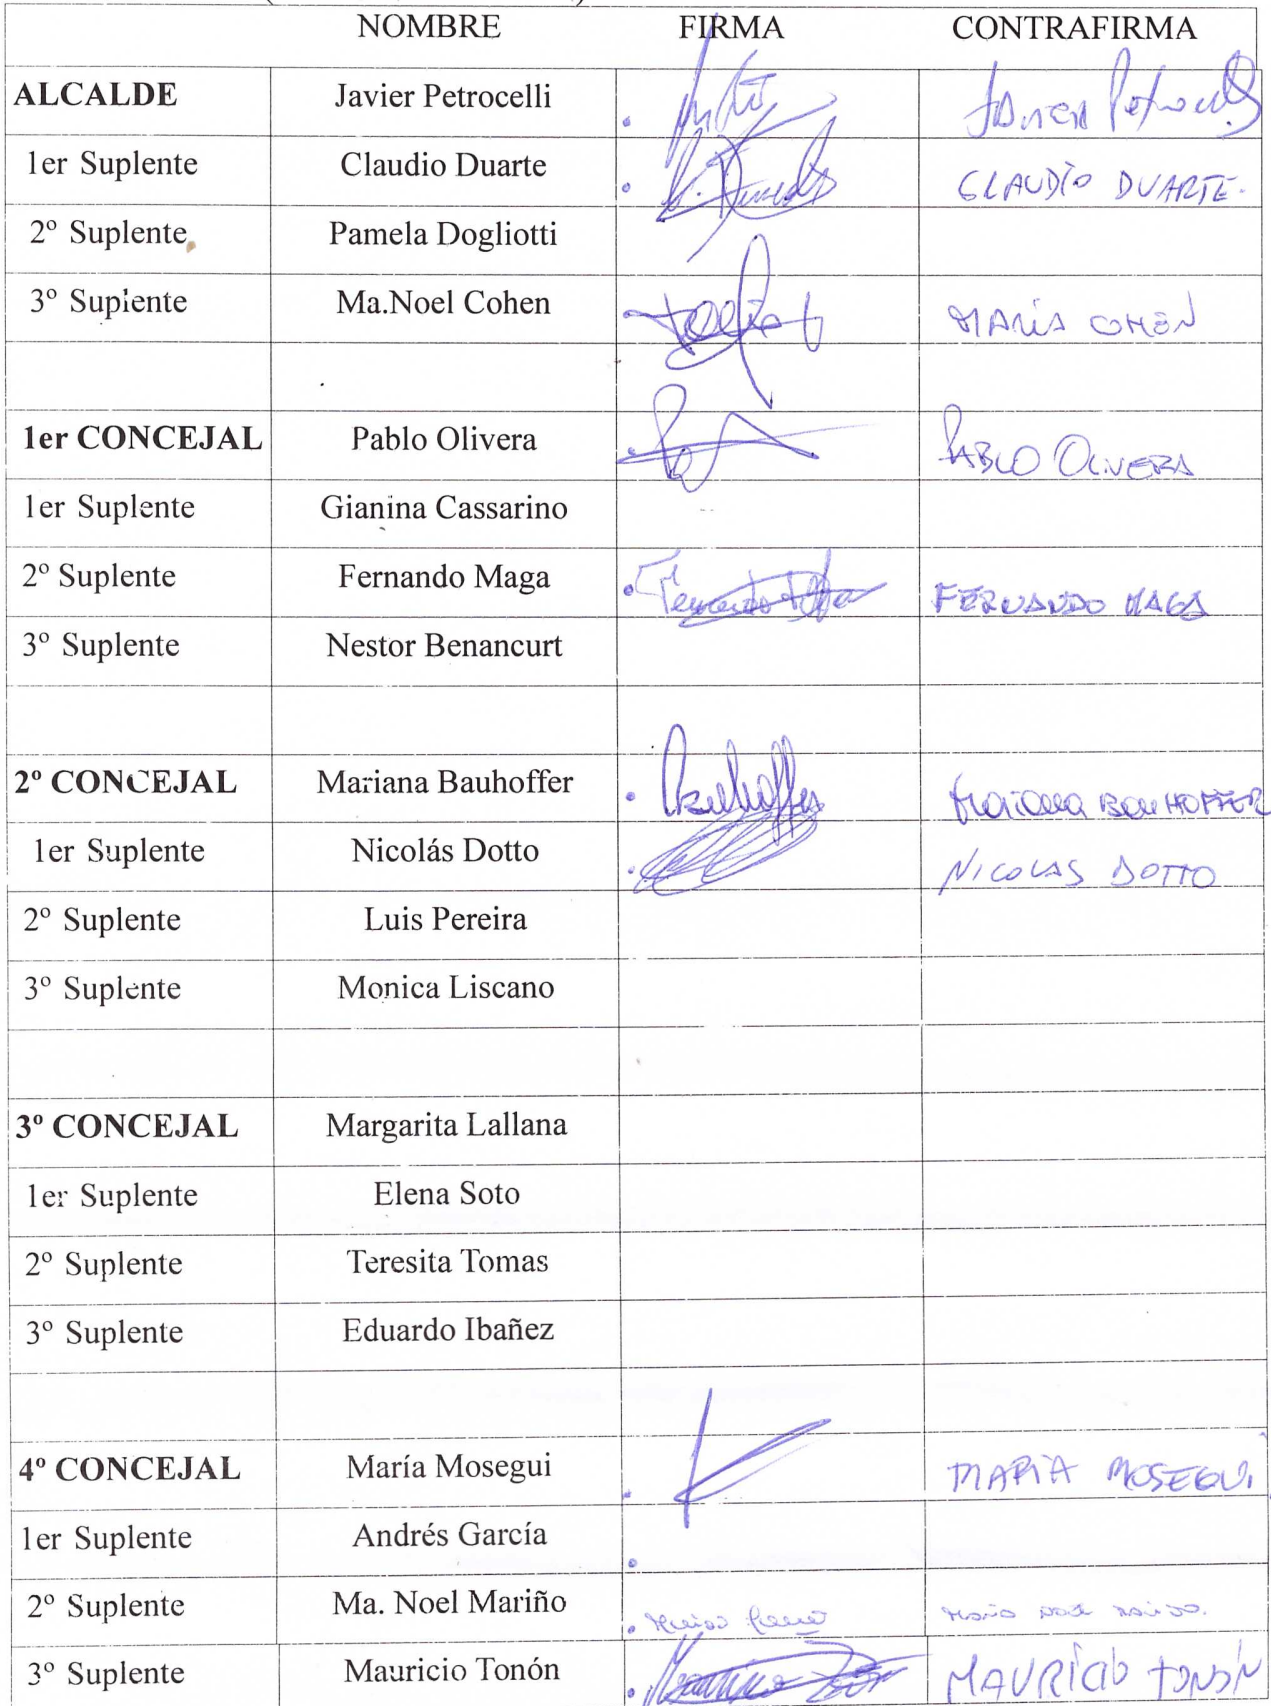 NOMBRE FIRMA CONTRAFIRMA
ALCALDE Javier Petrocelli Javier Petrocelli
1er Suplente Claudio Duarte C. Duarte CLAUDIO DUARTE.
2º Suplente Pamela Dogliotti
3º Suplente Ma.Noel Cohen MARÍA COHEN
1er CONCEJAL Pablo Olivera PABLO OLIVERA
1er Suplente Gianina Cassarino
2º Suplente Fernando Maga Fernando Maga FERNANDO MAGA
3º Suplente Nestor Benancurt
2º CONCEJAL Mariana Bauhoffer Bauhoffer Mariana BAUHOFFER
1er Suplente Nicolás Dotto NICOLAS DOTTO
2º Suplente Luis Pereira
3º Suplente Monica Liscano
3º CONCEJAL Margarita Lallana
1er Suplente Elena Soto
2º Suplente Teresita Tomas
3º Suplente Eduardo Ibañez
4º CONCEJAL María Mosegui MARIA MOSEGUI
1er Suplente Andrés García
2º Suplente Ma. Noel Mariño
3º Suplente Mauricio Tonón MAURICIO TONÓN